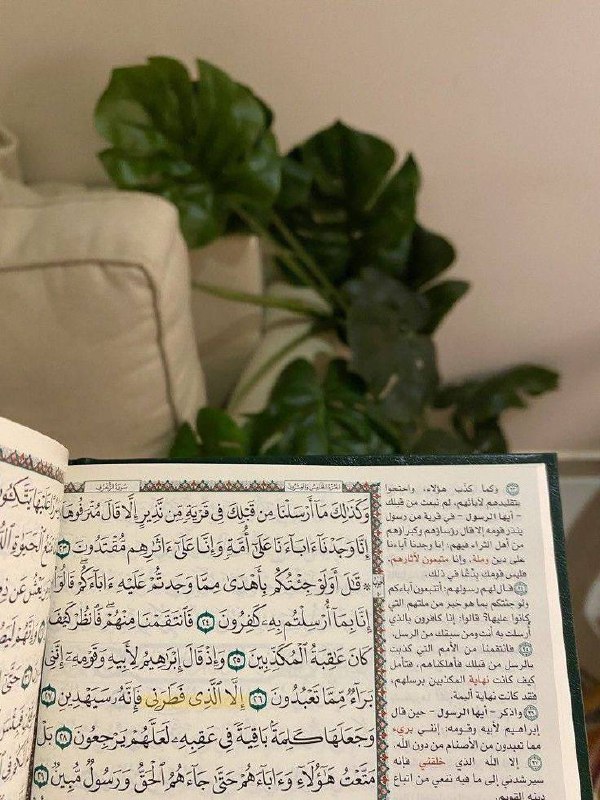 الجزء الخامس والعشرون
سورة الزخرف
وَكَذَٰلِكَ مَآ أَرْسَلْنَا مِن قَبْلِكَ فِى قَرْيَةٍ مِّن نَّذِيرٍ إِلَّا قَالَ مُتْرَفُوهَآ
إِنَّا وَجَدْنَآ ءَابَآءَنَا عَلَىٰٓ أُمَّةٍ وَإِنَّا عَلَىٰٓ ءَاثَٰرِهِم مُّقْتَدُونَ ٢٣
۞ قَٰلَ أَوَلَوْ جِئْتُكُم بِأَهْدَىٰ مِمَّا وَجَدتُّمْ عَلَيْهِ ءَابَآءَكُمْ قَالُوٓا۟
إِنَّا بِمَآ أُرْسِلْتُم بِهِۦ كَٰفِرُونَ ٢٤ فَٱنتَقَمْنَا مِنْهُمْ فَٱنظُرْ كَيْفَ
كَانَ عَٰقِبَةُ ٱلْمُكَذِّبِينَ ٢٥ وَإِذْ قَالَ إِبْرَٰهِيمُ لِأَبِيهِ وَقَوْمِهِۦٓ إِنَّنِى
بَرَآءٌ مِّمَّا تَعْبُدُونَ ٢٦ إِلَّا ٱلَّذِى فَطَرَنِى فَإِنَّهُۥ سَيَهْدِينِ ٢٧
وَجَعَلَهَا كَلِمَةًۢ بَاقِيَةً فِى عَقِبِهِۦ لَعَلَّهُمْ يَرْجِعُونَ ٢٨ بَلْ
مَتَّعْتُ هَٰٓؤُلَآءِ وَءَابَآءَهُمْ حَتَّىٰ جَآءَهُمُ ٱلْحَقُّ وَرَسُولٌ مُّبِينٌ ٢٩
٢٣ وكما كذب هؤلاء، واحتجوا
بتقليدهم لآبائهم، لم نبعث من قبلك
- أيها الرسول - في قرية من رسول
ينذر قومه إلا قال رؤساؤهم وكبراؤهم
من أهل الثراء فيهم: إنا وجدنا آباءنا
على دين وملة، وإنا متبعون لآثارهم.
فليس قومك بِدْعًا في ذلك.
٢٤ قال لهم رسولهم: أتتبعون آباءكم
ولو جئتكم بما هو خير من ملتهم التي
كانوا عليها؟ قالوا: إنا كافرون بالذي
أرسلت به أنت ومن سبقك من الرسل.
٢٥ فانتقمنا من الأمم التي كذبت
بالرسل من قبلك فأهلكناهم، فتأمل
كيف كانت نهاية المكذبين برسلهم،
فقد كانت نهاية أليمة.
٢٦ واذكر - أيها الرسول - حين قال
إبراهيم لأبيه وقومه: إنني بريء
مما تعبدون من الأصنام من دون الله.
٢٧ إلا الله الذي خلقني فإنه
سيرشدني إلى ما فيه نفعي من اتباع
دينه القويم.